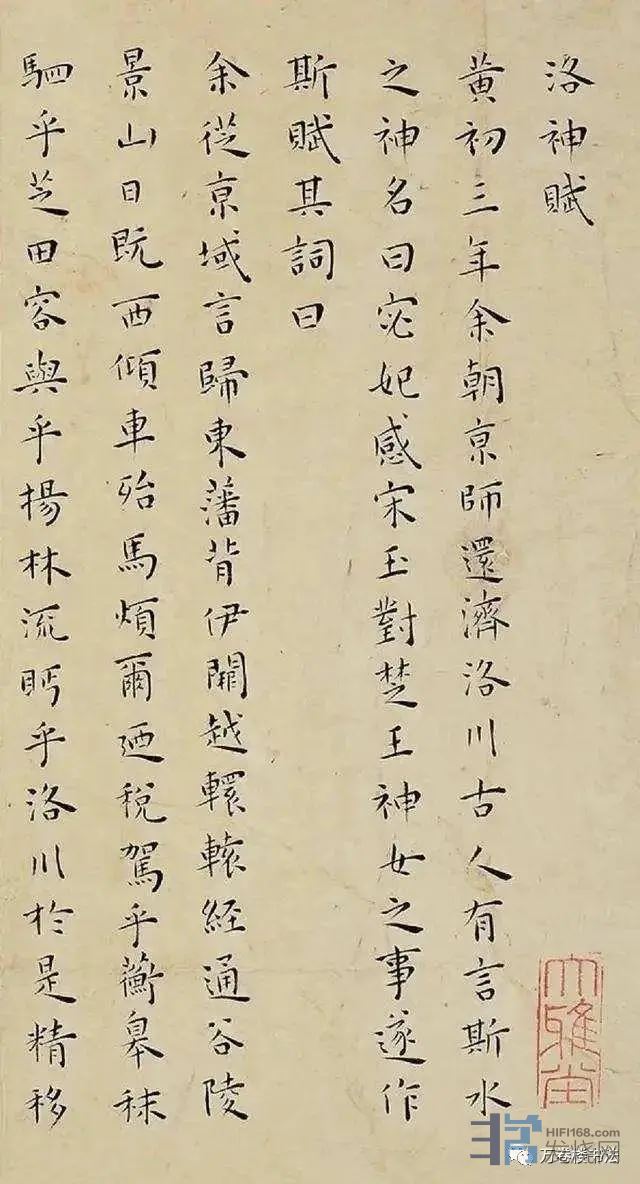 洛神賦
黃初三年余朝京師還濟洛川古人有言斯水
之神名曰宓妃感宋玉對楚王神女之事遂作
斯賦其詞曰
余從京域言歸東藩背伊闕越轘轅經通谷陵
景山日既西傾車殆馬煩爾廼稅駕乎蘅皋秣
駟乎芝田容與乎楊林流眄乎洛川於是精移
大雅堂
HIFI168.com
发烧网
万卷楼书法